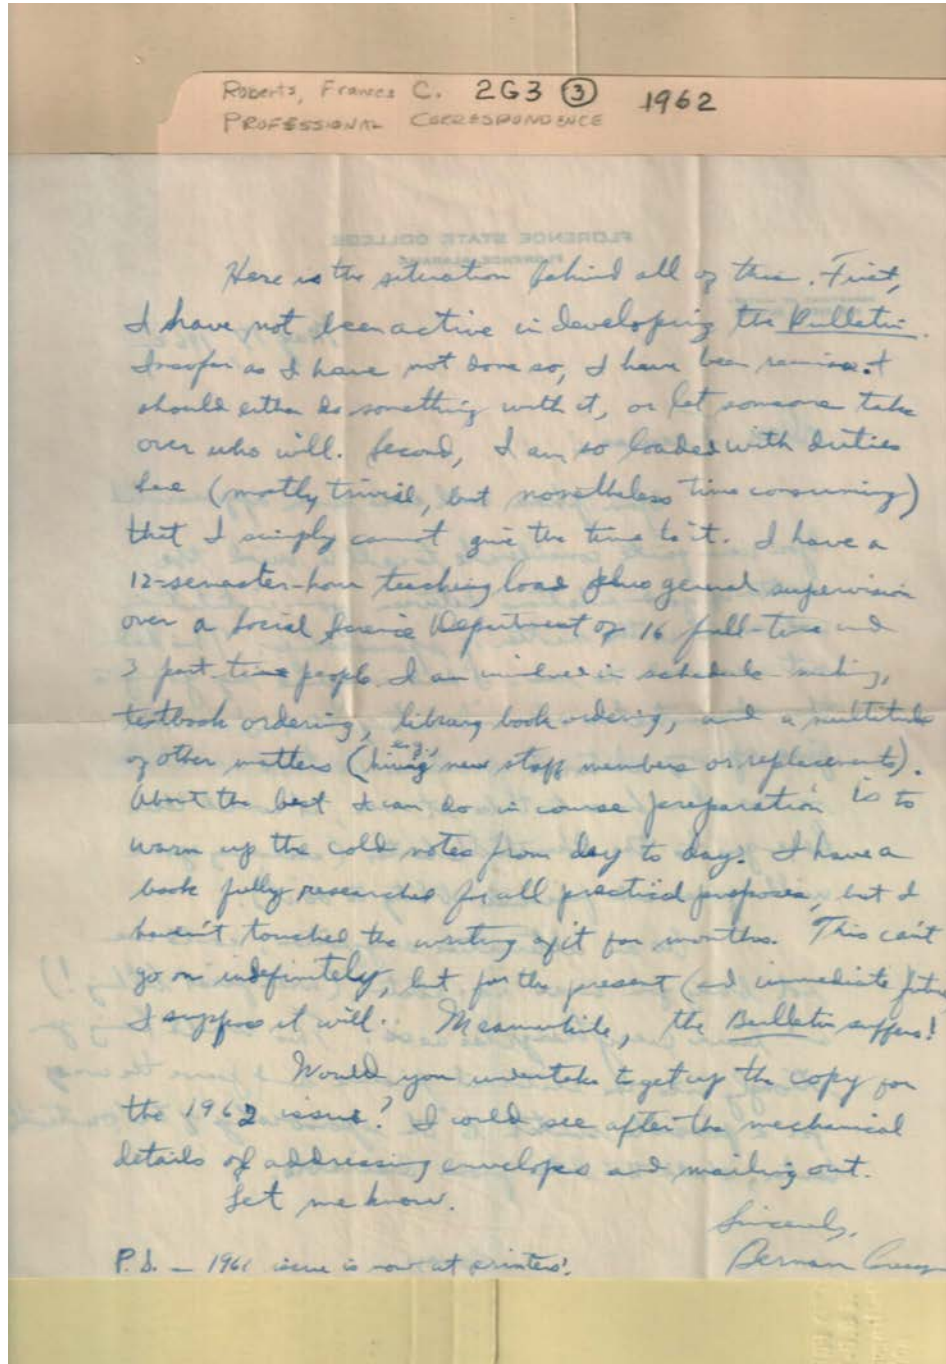 Roberts, Frances C. 2G3 ③ 1962
PROFESSIONAL CORRESPONDENCE
FLORENCE STATE COLLEGE
Here is the situation behind all of this. First,
I have not been active in developing the Bulletin.
Insofar as I have not done so, I have been remiss. I
should either do something with it, or let someone take
over who will. Second, I am so loaded with duties
here (mostly trivial, but nonetheless time consuming)
that I simply cannot give the time to it. I have a
12-semester-hour teaching load plus general supervision
over a Social Science Department of 16 full-time and
3 part-time people. I am involved in schedule making,
textbook ordering, library book ordering, and a multitude
of other matters (e.g., hiring new staff members or replacements).
About the best I can do in course preparation is to
warm up the cold notes from day to day. I have a
book fully researched for all practical purposes, but I
haven't touched the writing of it for months. This can't
go on indefinitely, but for the present (and immediate future)
I suppose it will. Meanwhile, the Bulletin suffers!
Would you undertake to get up the copy for
the 1962 issue? I would see after the mechanical
details of addressing envelopes and mailing out.
Let me know.
Sincerely,
P.S. — 1961 issue is now at printers'.